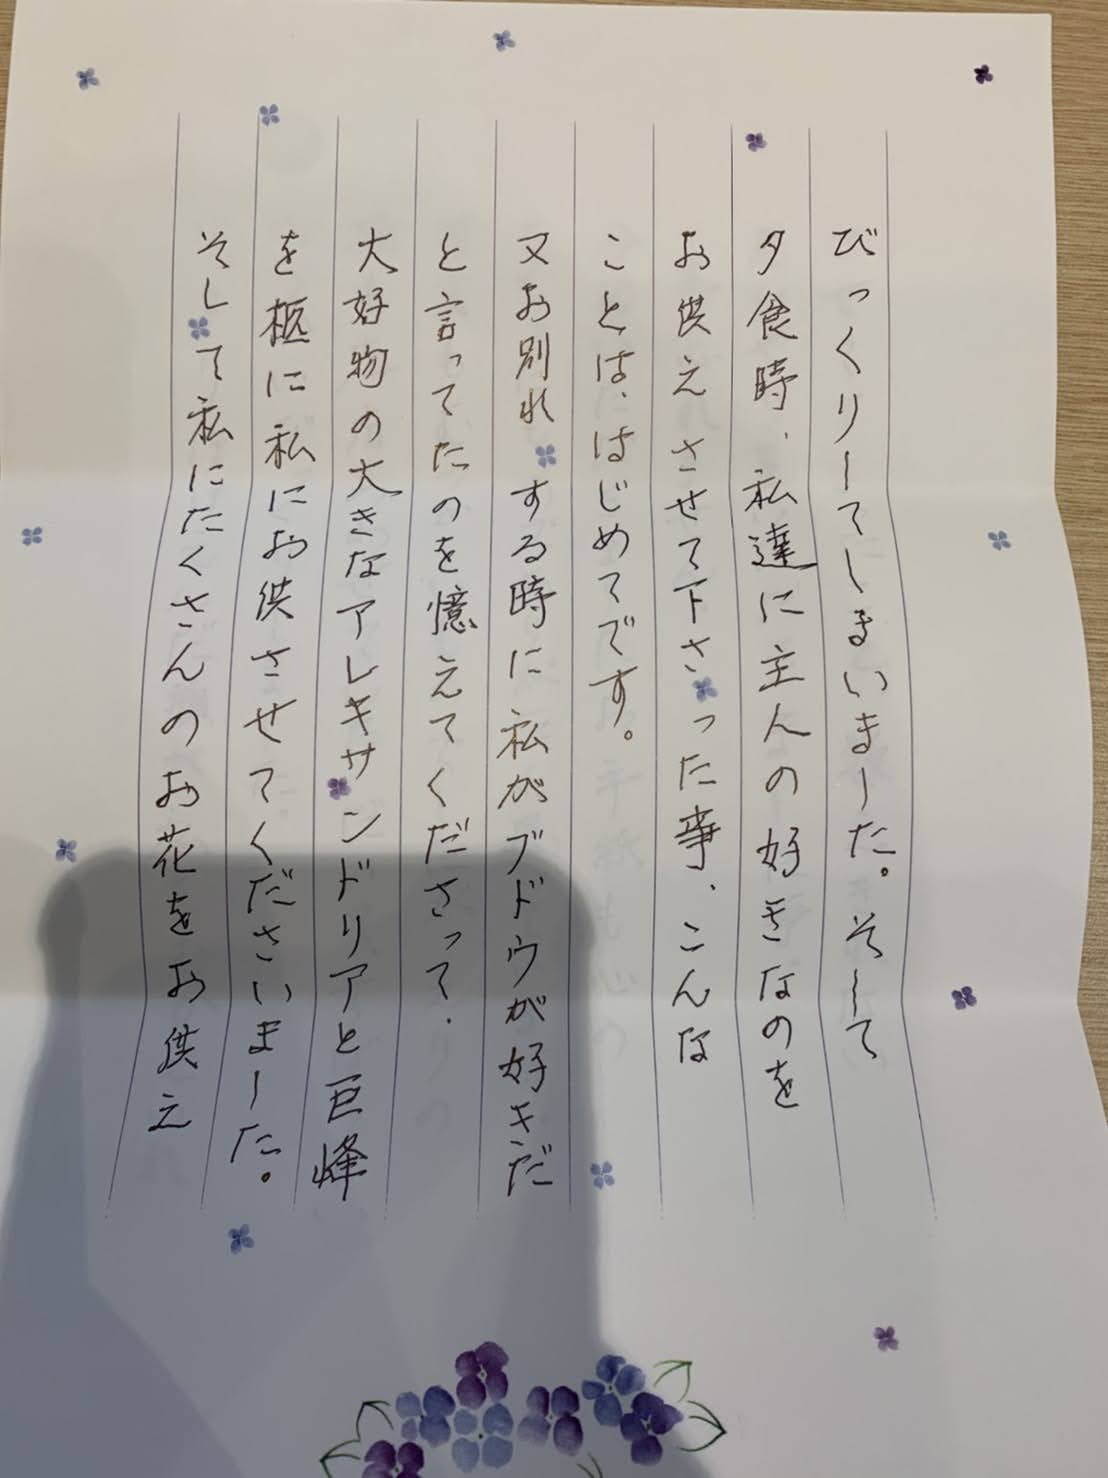 びっくりしてしまいました。そして
夕食時、私達に主人の好きなのを
お供えさせて下さった事、こんな
ことは、はじめてです。
又お別れする時に私がブドウが好きだ
と言ってたのを憶えてくださって、
大好物の大きなアレキサンドリアと巨峰
を柩に私にお供させてくださいました。
そして私にたくさんのお花をお供え